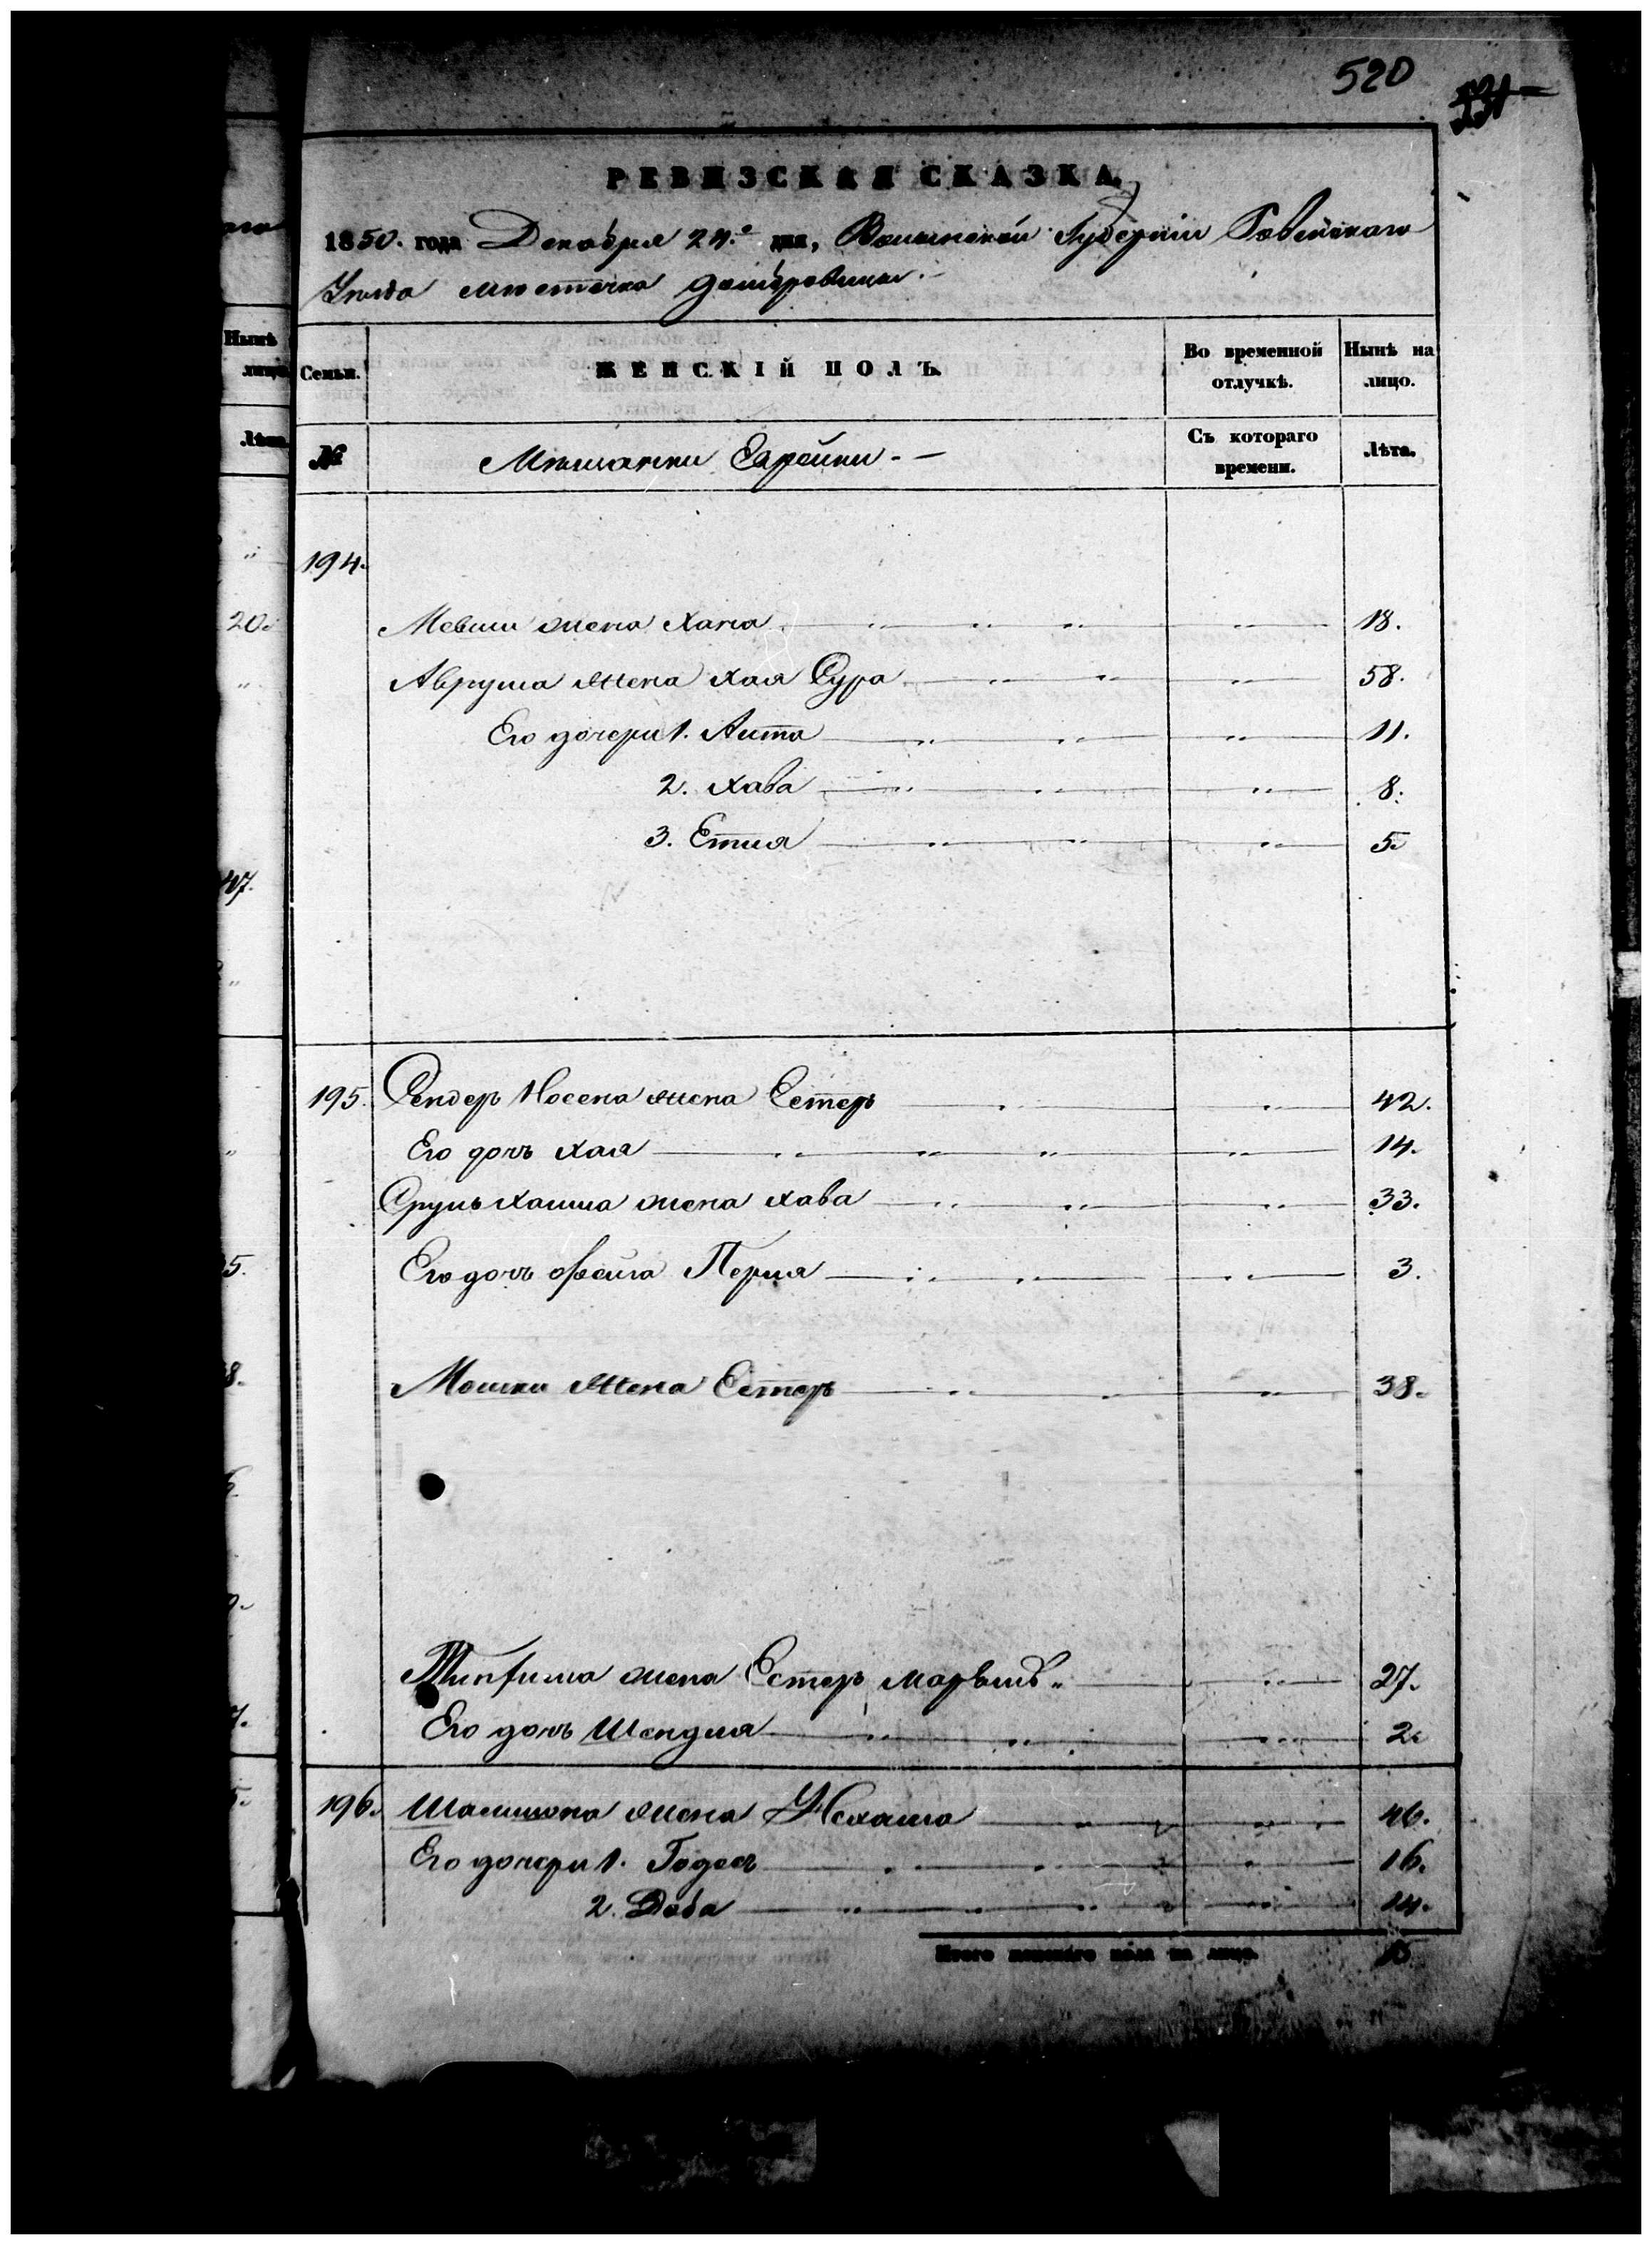 520
РЕВИЗСКАЯ СКАЗКА
1850. года Декабря 24.е дня, Волынской Губерніи Ровенскаго
Уѣзда мѣстечка Домбровицы.
Семьи. ЖЕНСКІЙ ПОЛЪ. Во временной отлучкѣ. Нынѣ на лицо.
№ Мѣщанки Еврейки. Съ котораго времени. Лѣта.
194.
Мевши жена Хана 18.
Аврума жена Хая Сура 58.
Его дочери 1. Аита 11.
2. Хава 8.
3. Етля 5.
195. Сендеръ Носена жена Естеръ 42.
Его дочь Хая 14.
Сруль Хаима жена Хава 33.
Его дочь Фейга Перля 3.
Мошки жена Естеръ 38.
жена Естеръ 27.
Его дочь Шендля 2.
196. жена Нехама 46.
Его дочери 1. Годесъ 16.
2. Доба 14.
Итого женскаго пола на лицо.
Нынѣ
лицо
Лѣта.
20.
47.